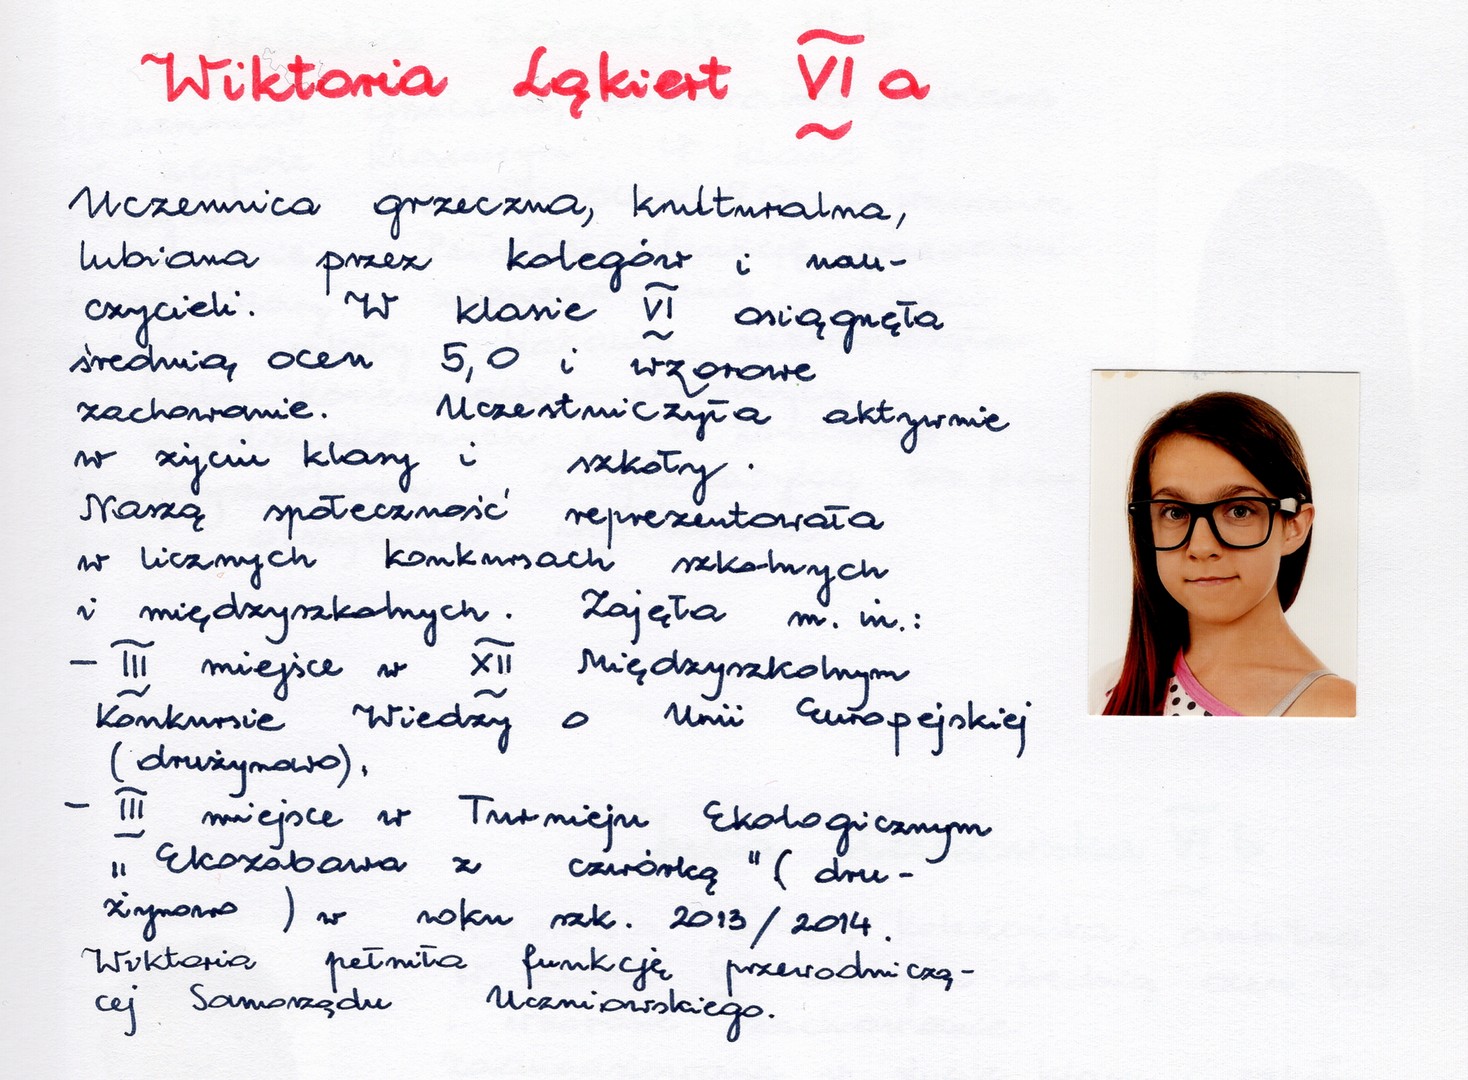 Wiktoria Łąkiert VI a
Uczennica grzeczna, kulturalna,
lubiana przez kolegów i nau-
czycieli. W klasie VI osiągnęła
średnią ocen 5,0 i wzorowe
zachowanie. Uczestniczyła aktywnie
w życiu klasy i szkoły.
Naszą społeczność reprezentowała
w licznych konkursach szkolnych
i międzyszkolnych. Zajęła m. in.:
- III miejsce w XII Międzyszkolnym
Konkursie Wiedzy o Unii Europejskiej
(drużynowo),
- III miejsce w Turnieju Ekologicznym
„Ekozabawa z czwórką" (dru-
żynowo) w roku szk. 2013/2014.
Wiktoria pełniła funkcję przewodniczą-
cej Samorządu Uczniowskiego.